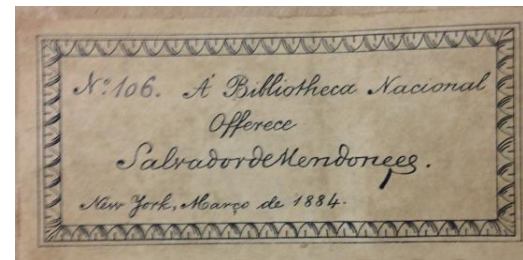 Nº 106. Á Bibliotheca Nacional
Offerece
Salvador de Mendonça.
New York, Março de 1884.